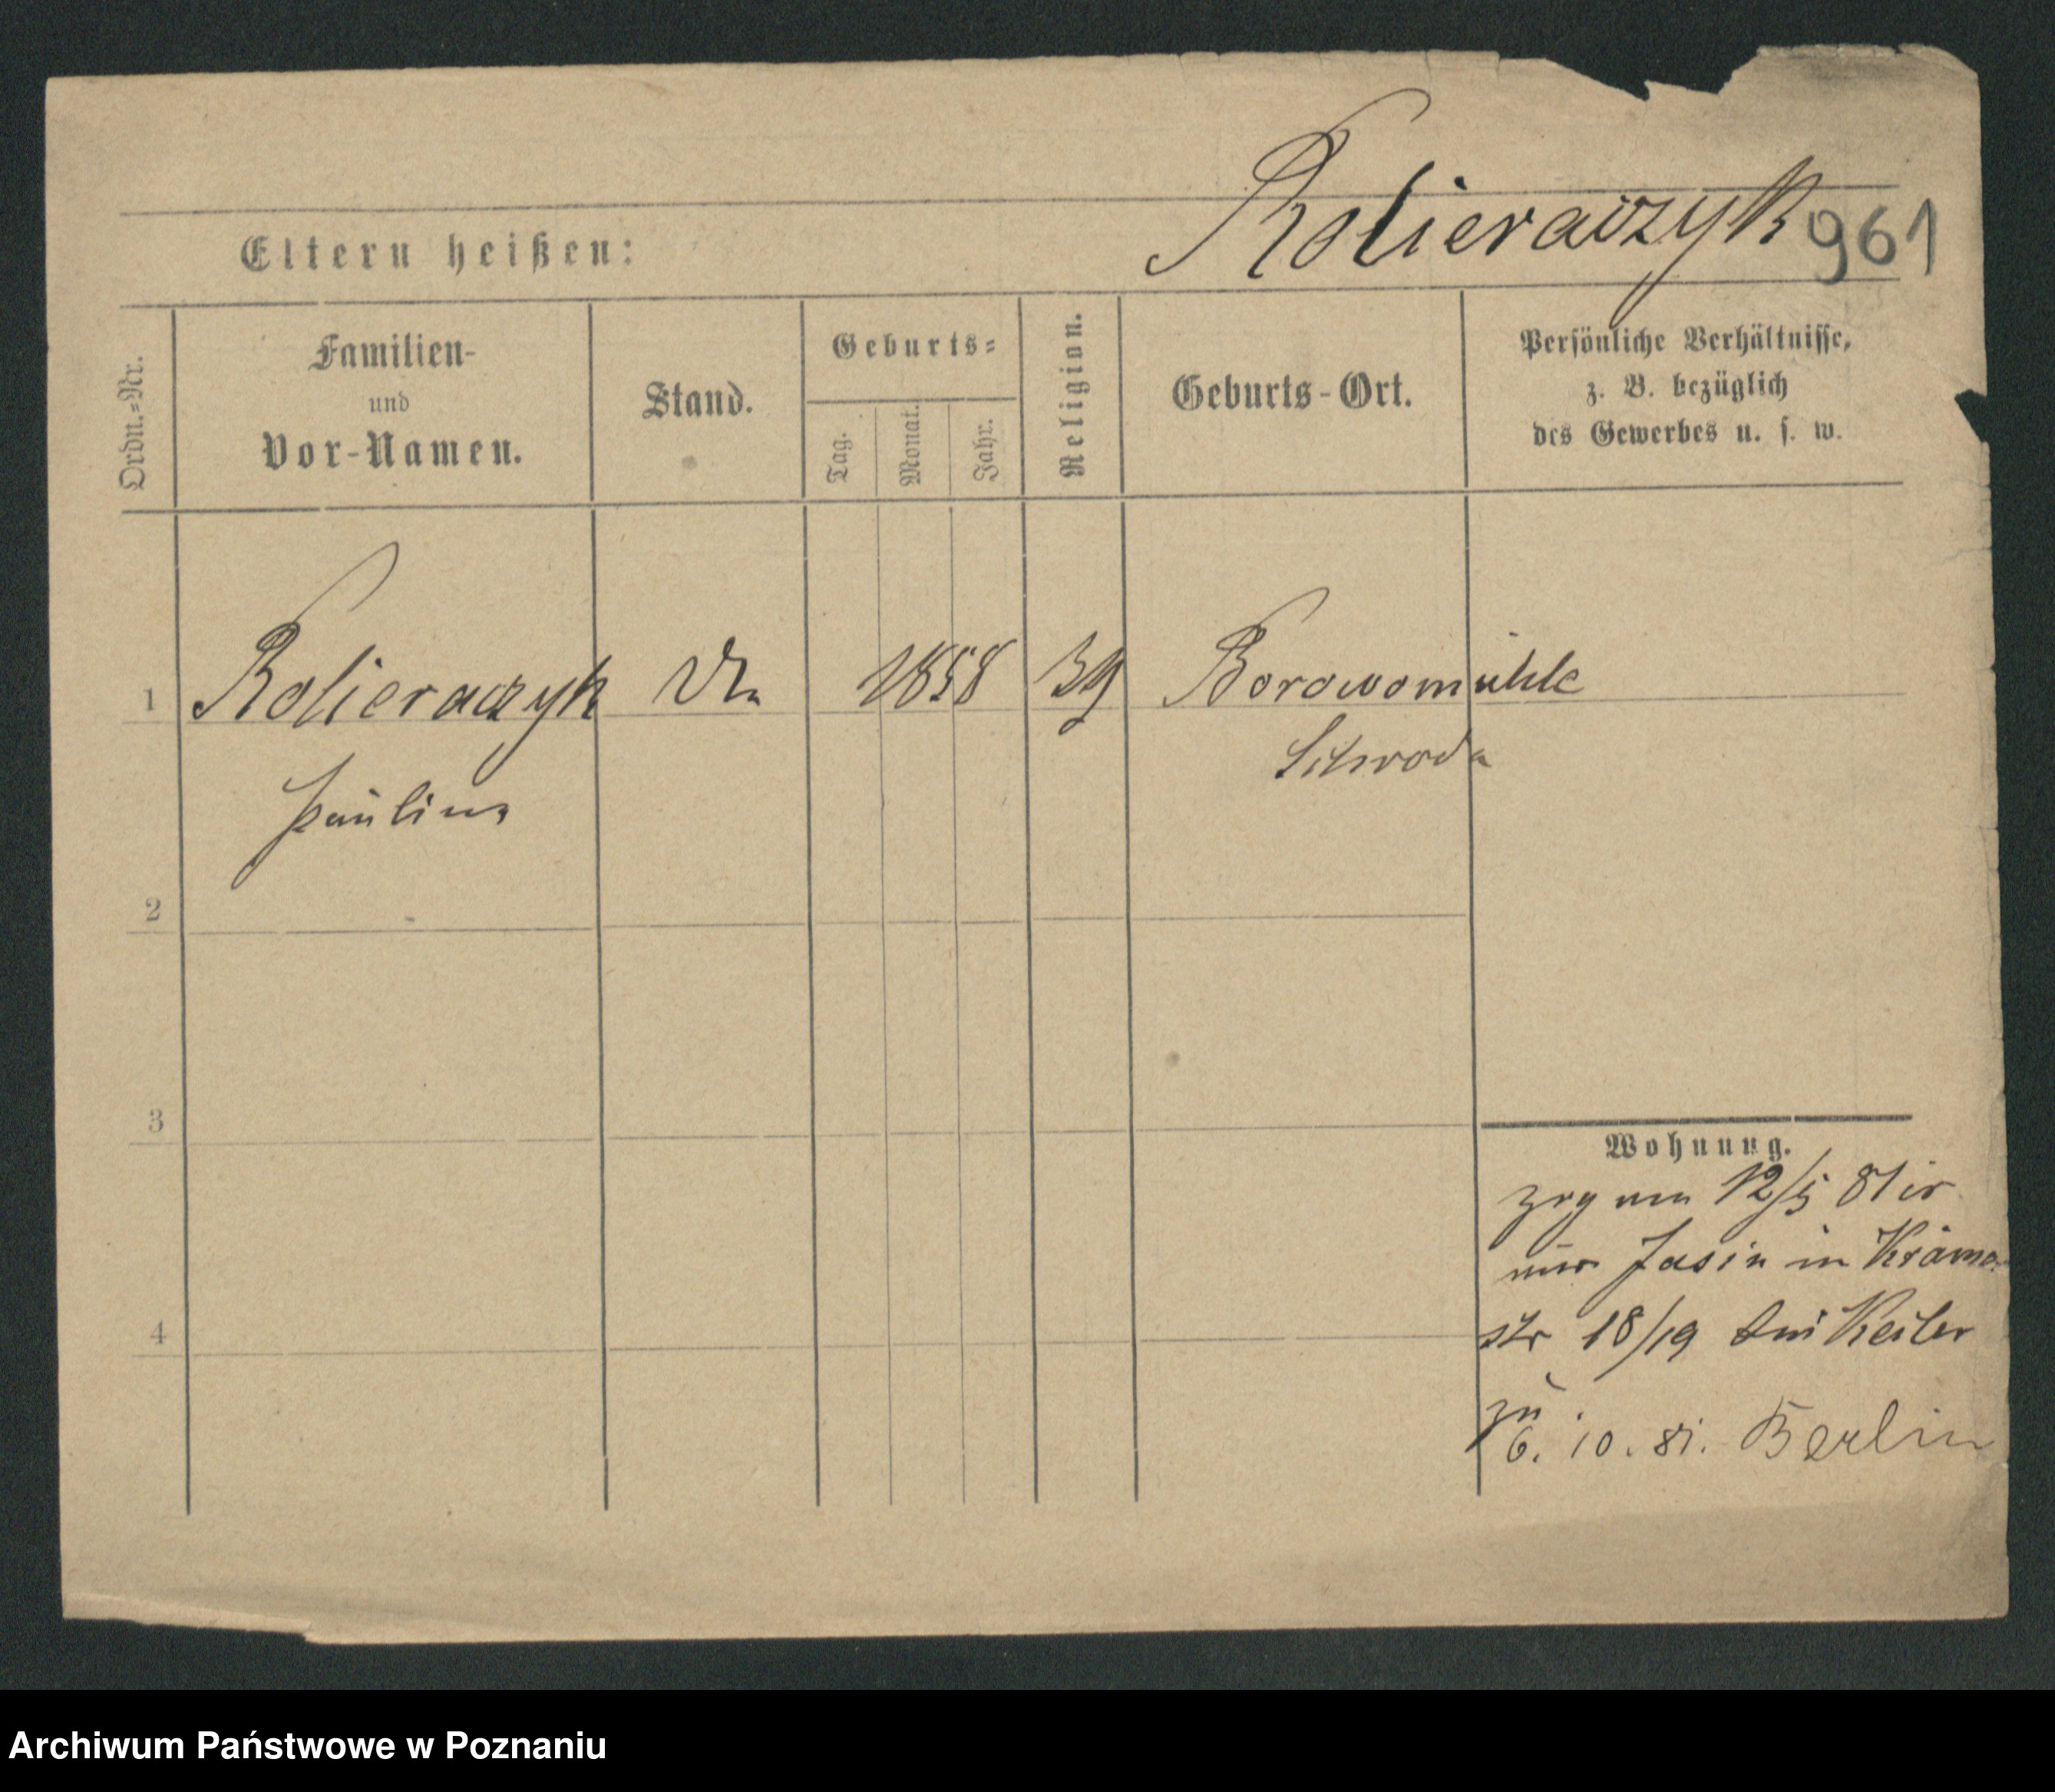 Rolieraczyk 961
Eltern heißen:
Ordn.=Nr.
Familien-
und
Vor-Namen.
Stand.
Geburts=
Tag.
Monat.
Jahr.
Religion.
Geburts-Ort.
Persönliche Verhältnisse,
z. B. bezüglich
des Gewerbes u. s. w.
1 Rolieraczyk 1858 Borowomühle
Schroda
Paulina
2
3
4
Wohnung.
zog am 12/5 81
Jasin in Krämer
str 18/19 bei Keiler
zu
6. 10. 81. Berlin
Archiwum Państwowe w Poznaniu